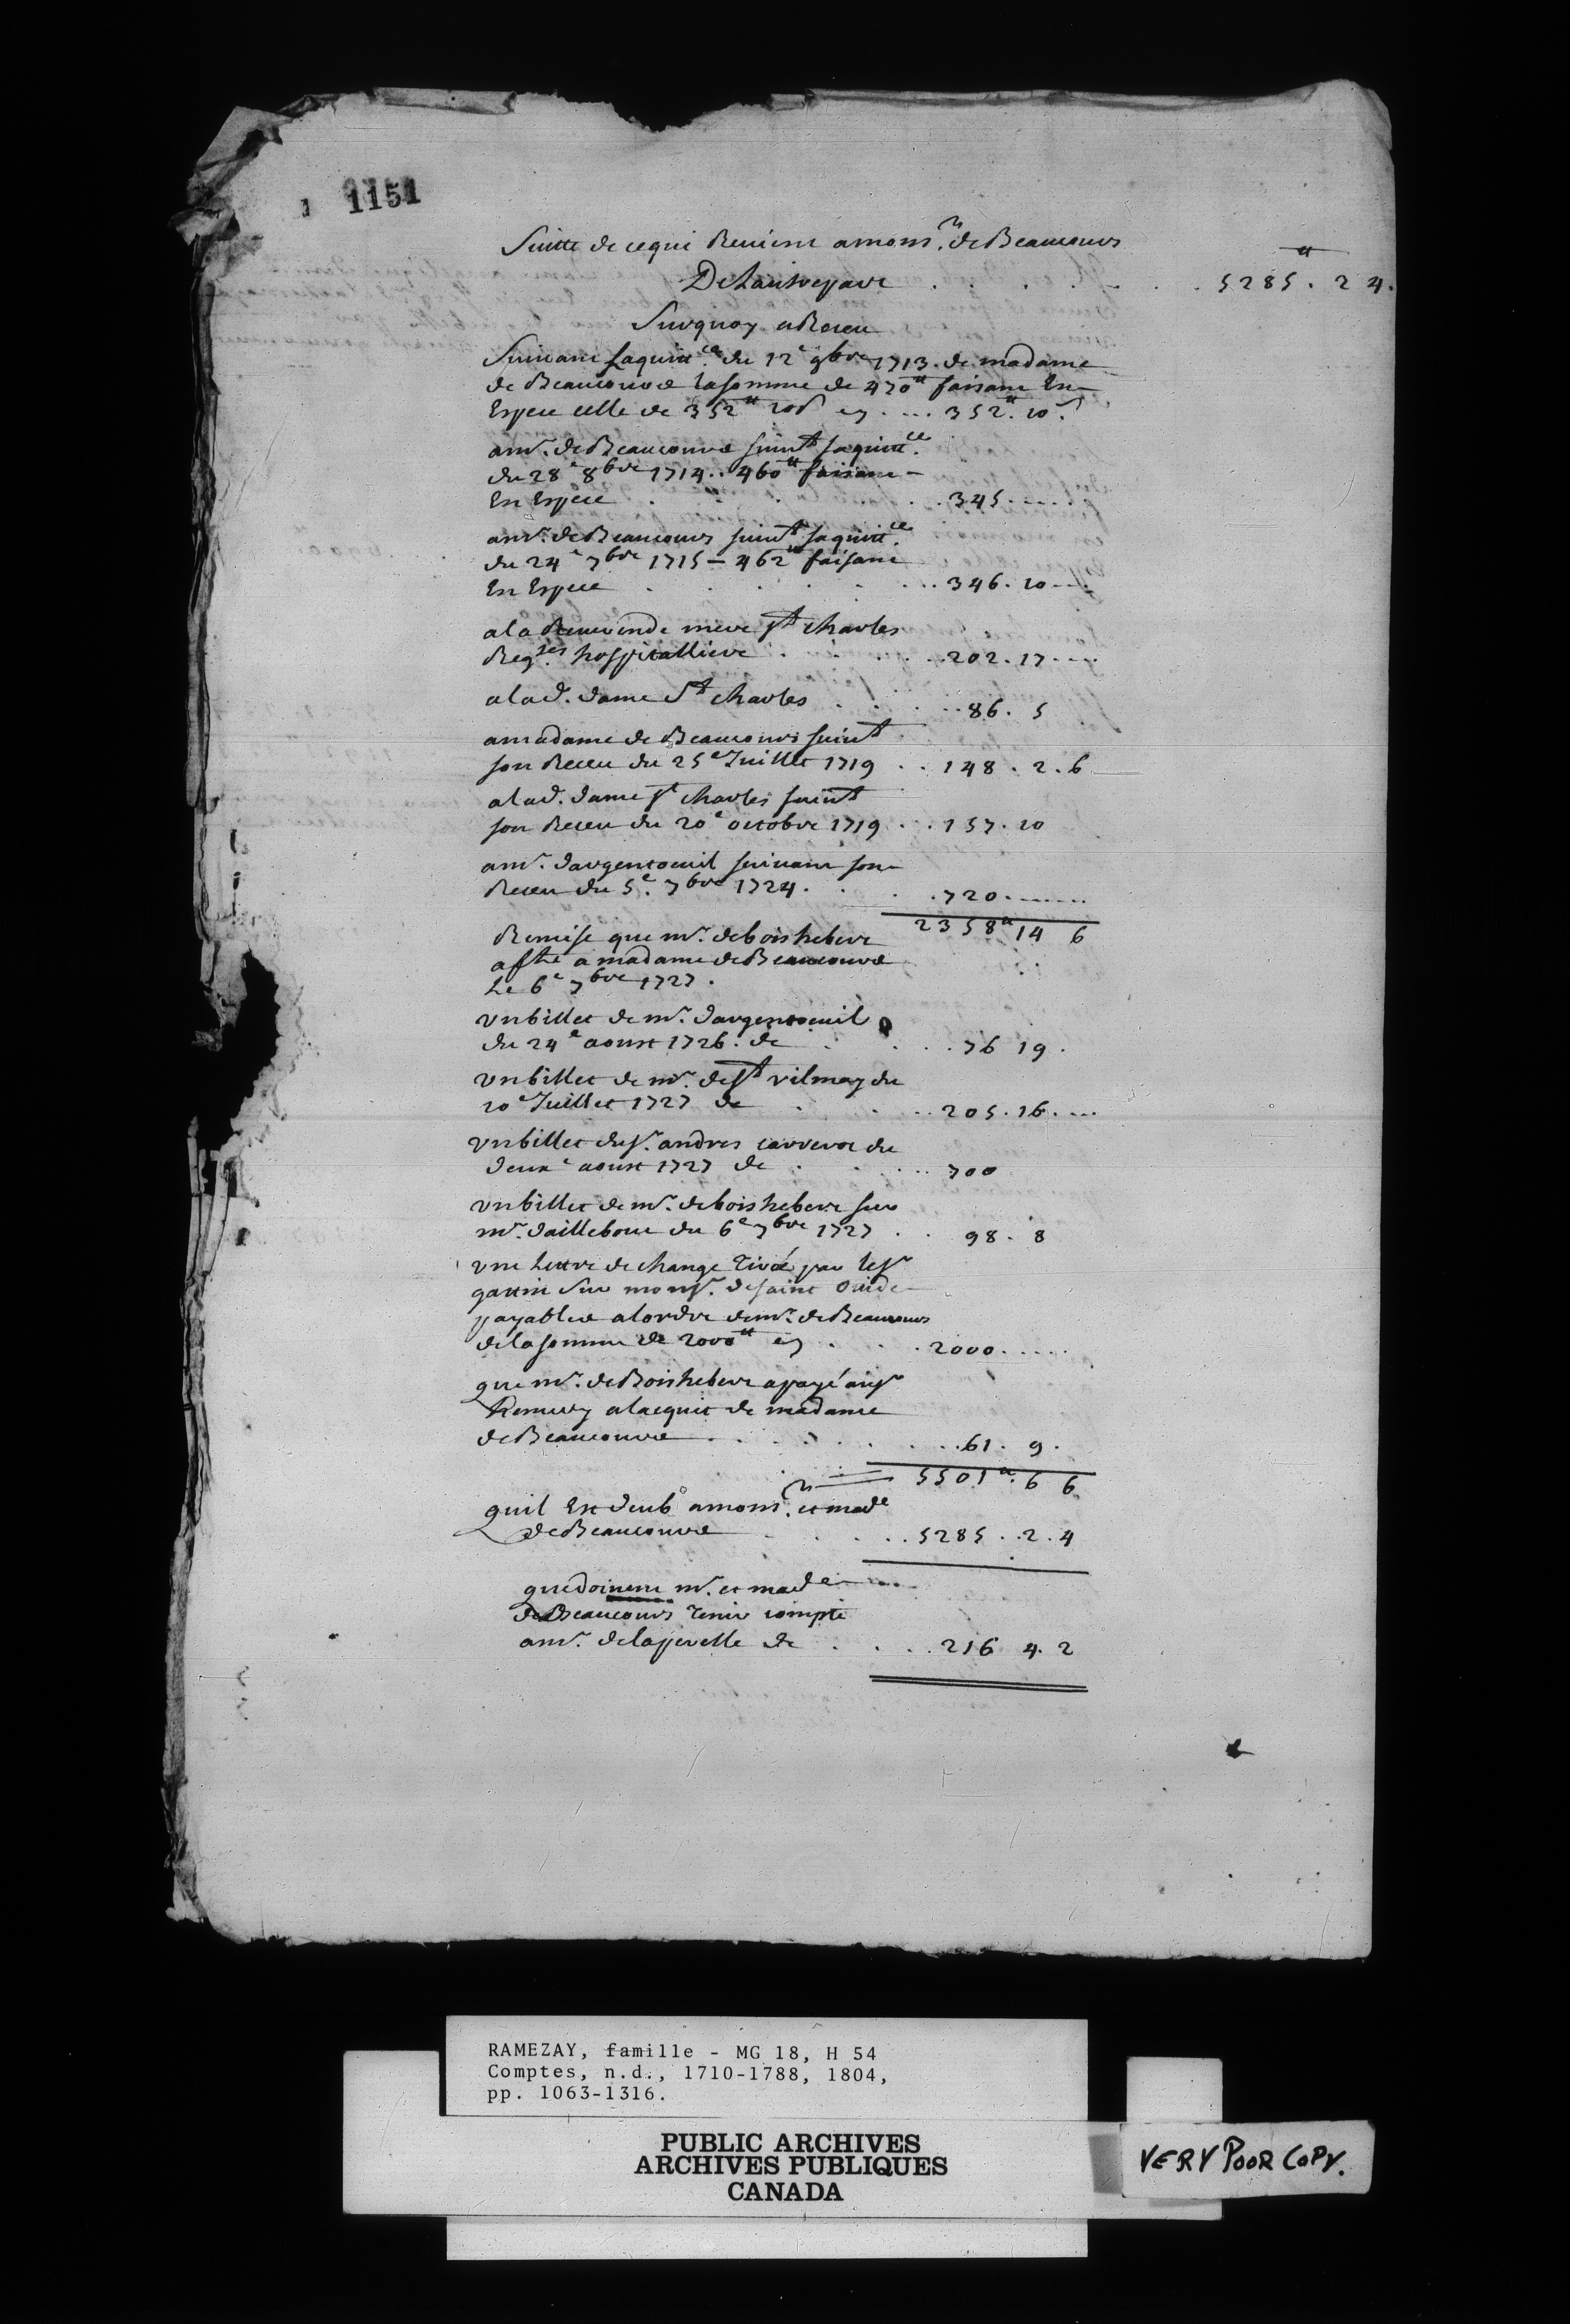 1151
Suitte de ce qui Revient a mons.r de Beaucours
De Lautrepart . . . . . . 5285 . 2 4.
Surquoy a Receu
Suivant saquitt.ce du 12e 9bre 1713. de madame
de Beaucourt la somme de 470tt faisant En
Espece celle de 352tt 10s cy .... 352tt. 10s
a mr. de Beaucourt suivt saquitt.ce
du 28e 8bre 1714 .. 460tt faisant
En Espece . . . . . 345 .....
a mr. de Beaucours suivt saquitt.ce
du 24e 7bre 1715 - 462tt faisant
En Espece . . . . . 346 . 10 ...
a la Reverende mere St charles
Relig.ses hospitalliere . . . 202 . 17 ....
a lad. dame St charles . . . 86 . 5
a madame de Beaucours suivt
son Receu du 25e Juillet 1719 . . 148 . 2 . 6
a lad. dame St charles suivt
son Receu du 20e octobre 1719 . . . 157 . 10
a mr. dargenteuil suivant son
Receu du 5e. 7bre 1724 . . . 720 .......
2358tt 14 6
Remise que mr. de boishebert
a fte a madame de Beaucourt
Le 6e 7bre 1727 .
Un billet de mr. dargenteuil
du 24e aoust 1726 . de . . . 76 19 .
Un billet de mr. de St vilmay du
10e Juillet 1727 de . . . 205 . 16 ....
Un billet du Sr. andres carrerot du
deuxe aoust 1727 de . . . 700
Un billet de mr. de boishebert sur
mr. dailleboust du 6e 7bre 1727 . . 98 . 8
Une Lettre de change Tirée par le Sr
gattin Sur monsr. de saint Ovide
payable a lordre de mr. de Beaucours
de la somme de 2000tt cy . . . 2000 .....
que mr. de Boishebert a payé au Sr
a lacquit de madame
de Beaucourt . . . . . 61 . 9 .
5501tt . 6 6
quil Est deub a mons.r et made
de Beaucourt . . . 5285 . . 2 . 4
que doivent mr. et made
de Beaucours Tenir compte
a mr. de laperelle de . . . 216 4 . 2
RAMEZAY, famille - MG 18, H 54
Comptes, n.d., 1710-1788, 1804,
pp. 1063-1316.
PUBLIC ARCHIVES
ARCHIVES PUBLIQUES
CANADA
VERY POOR COPY.